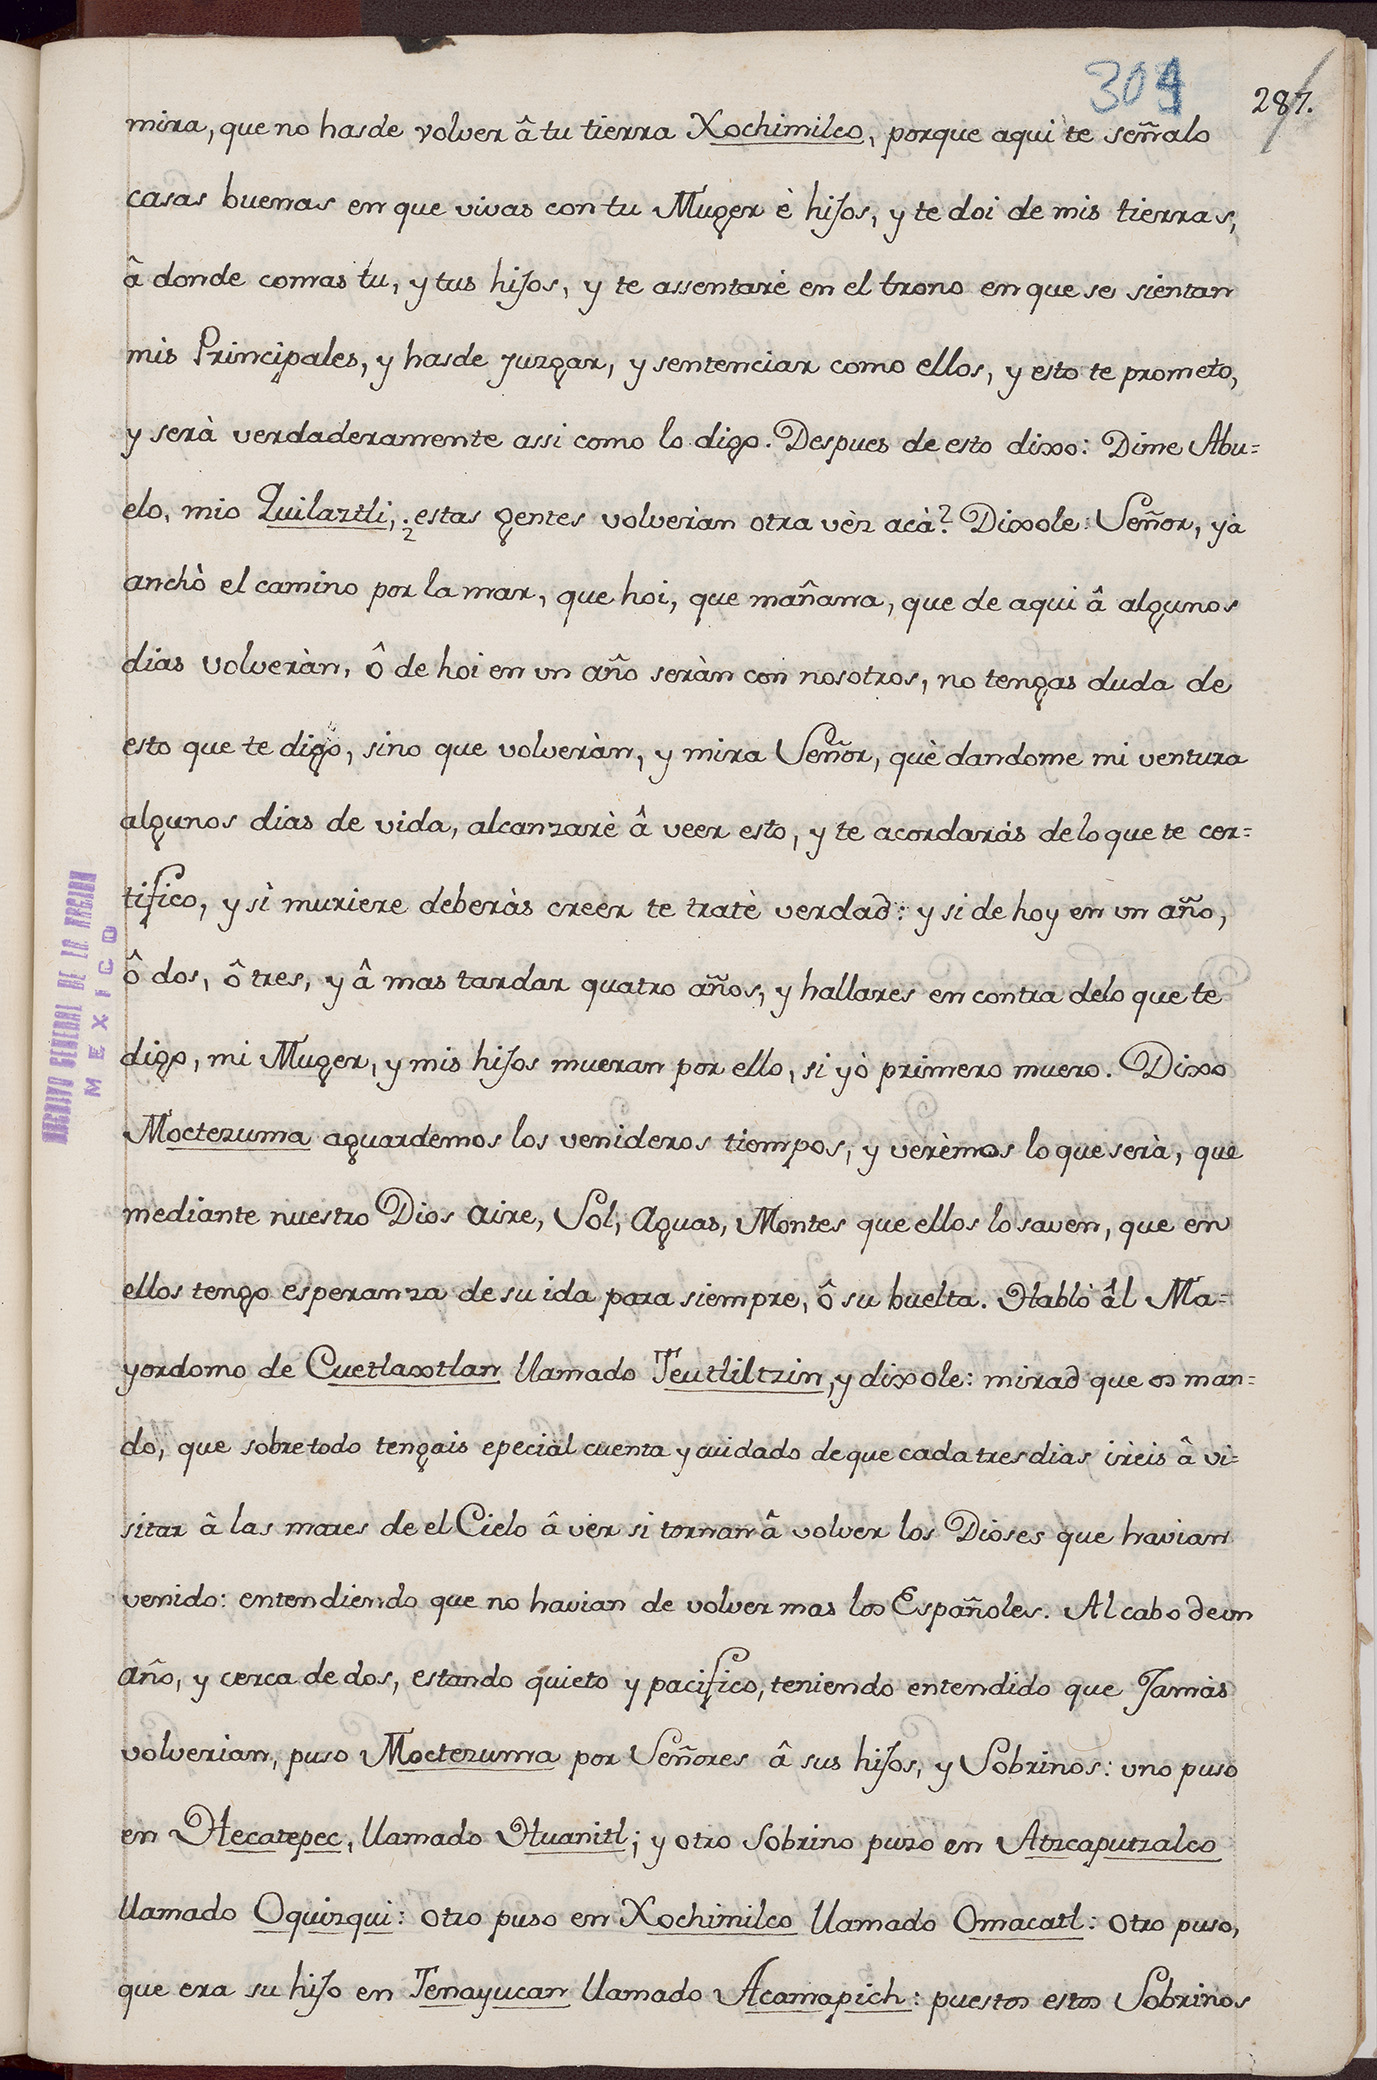 304 287.
mira, que no hasde volver â tu tierra Xochimilco, porque aqui te señalo
casas buenas en que vivas con tu Muger è hijos, y te doi de mis tierras,
â donde comas tu, y tus hijos, y te assentarè en el trono en que se sientan
mis Principales, y hasde juzgar, y sentenciar como ellos, y esto te prometo,
y serà verdaderamente assi como lo digo. Despues de esto dixo: Dime Abu=
elo, mio Quilaztli, ¿estas gentes volveràn otra vèz acà? Dixole: Señor, yà
anchò el camino por la mar, que hoi, que mañana, que de aqui â algunos
dias volveràn, ô de hoi en un año seràn con nosotros, no tengas duda de
esto que te digo, sino que volveràn, y mira Señor, què dandome mi ventura
algunos dias de vida, alcanzarè â veer esto, y te acordaràs delo que te cer=
tifico, y sì muriere deberàs creer te tratè verdad: y si de hoy en un año,
ô dos, ô tres, y â mas tardar quatro años, y hallares en contra delo que te
digo, mi Muger, y mis hijos mueran por ello, si yò primero muero. Dixo
Moctezuma aguardemos los venideros tiempos, y verèmos lo que serà, que
mediante nuestro Dios aire, Sol, Aguas, Montes que ellos lo saven, que en
ellos tengo esperanza de su ida para siempre, ô su buelta. Hablò âl Ma=
yordomo de Cuetlaxtlan llamado Teutliltzin, y dixole: mirad que os man=
do, que sobretodo tengais epecial cuenta y cuidado de que cada tres dias irèis â vi=
sitar â las mares de el Cielo â vèr si tornan â volver los Dioses que havian
venido: entendiendo que no havian de volver mas los Españoles. Al cabo de un
año, y cerca de dos, estando quieto y pacifico, teniendo entendido que Jamàs
volverian, puso Moctezuma por Señores â sus hijos, y Sobrinos: uno puso
en Hecatepec, llamado Huanitl; y otro Sobrino puzo en Atzcaputzalco
llamado Oquizqui: otro puso en Xochimilco llamado Omacatl: otro puso,
que era su hijo en Tenayucan llamado Acamapich: puestos estos Sobrinos
ARCHIVO GENERAL DE LA NACION
MEXICO